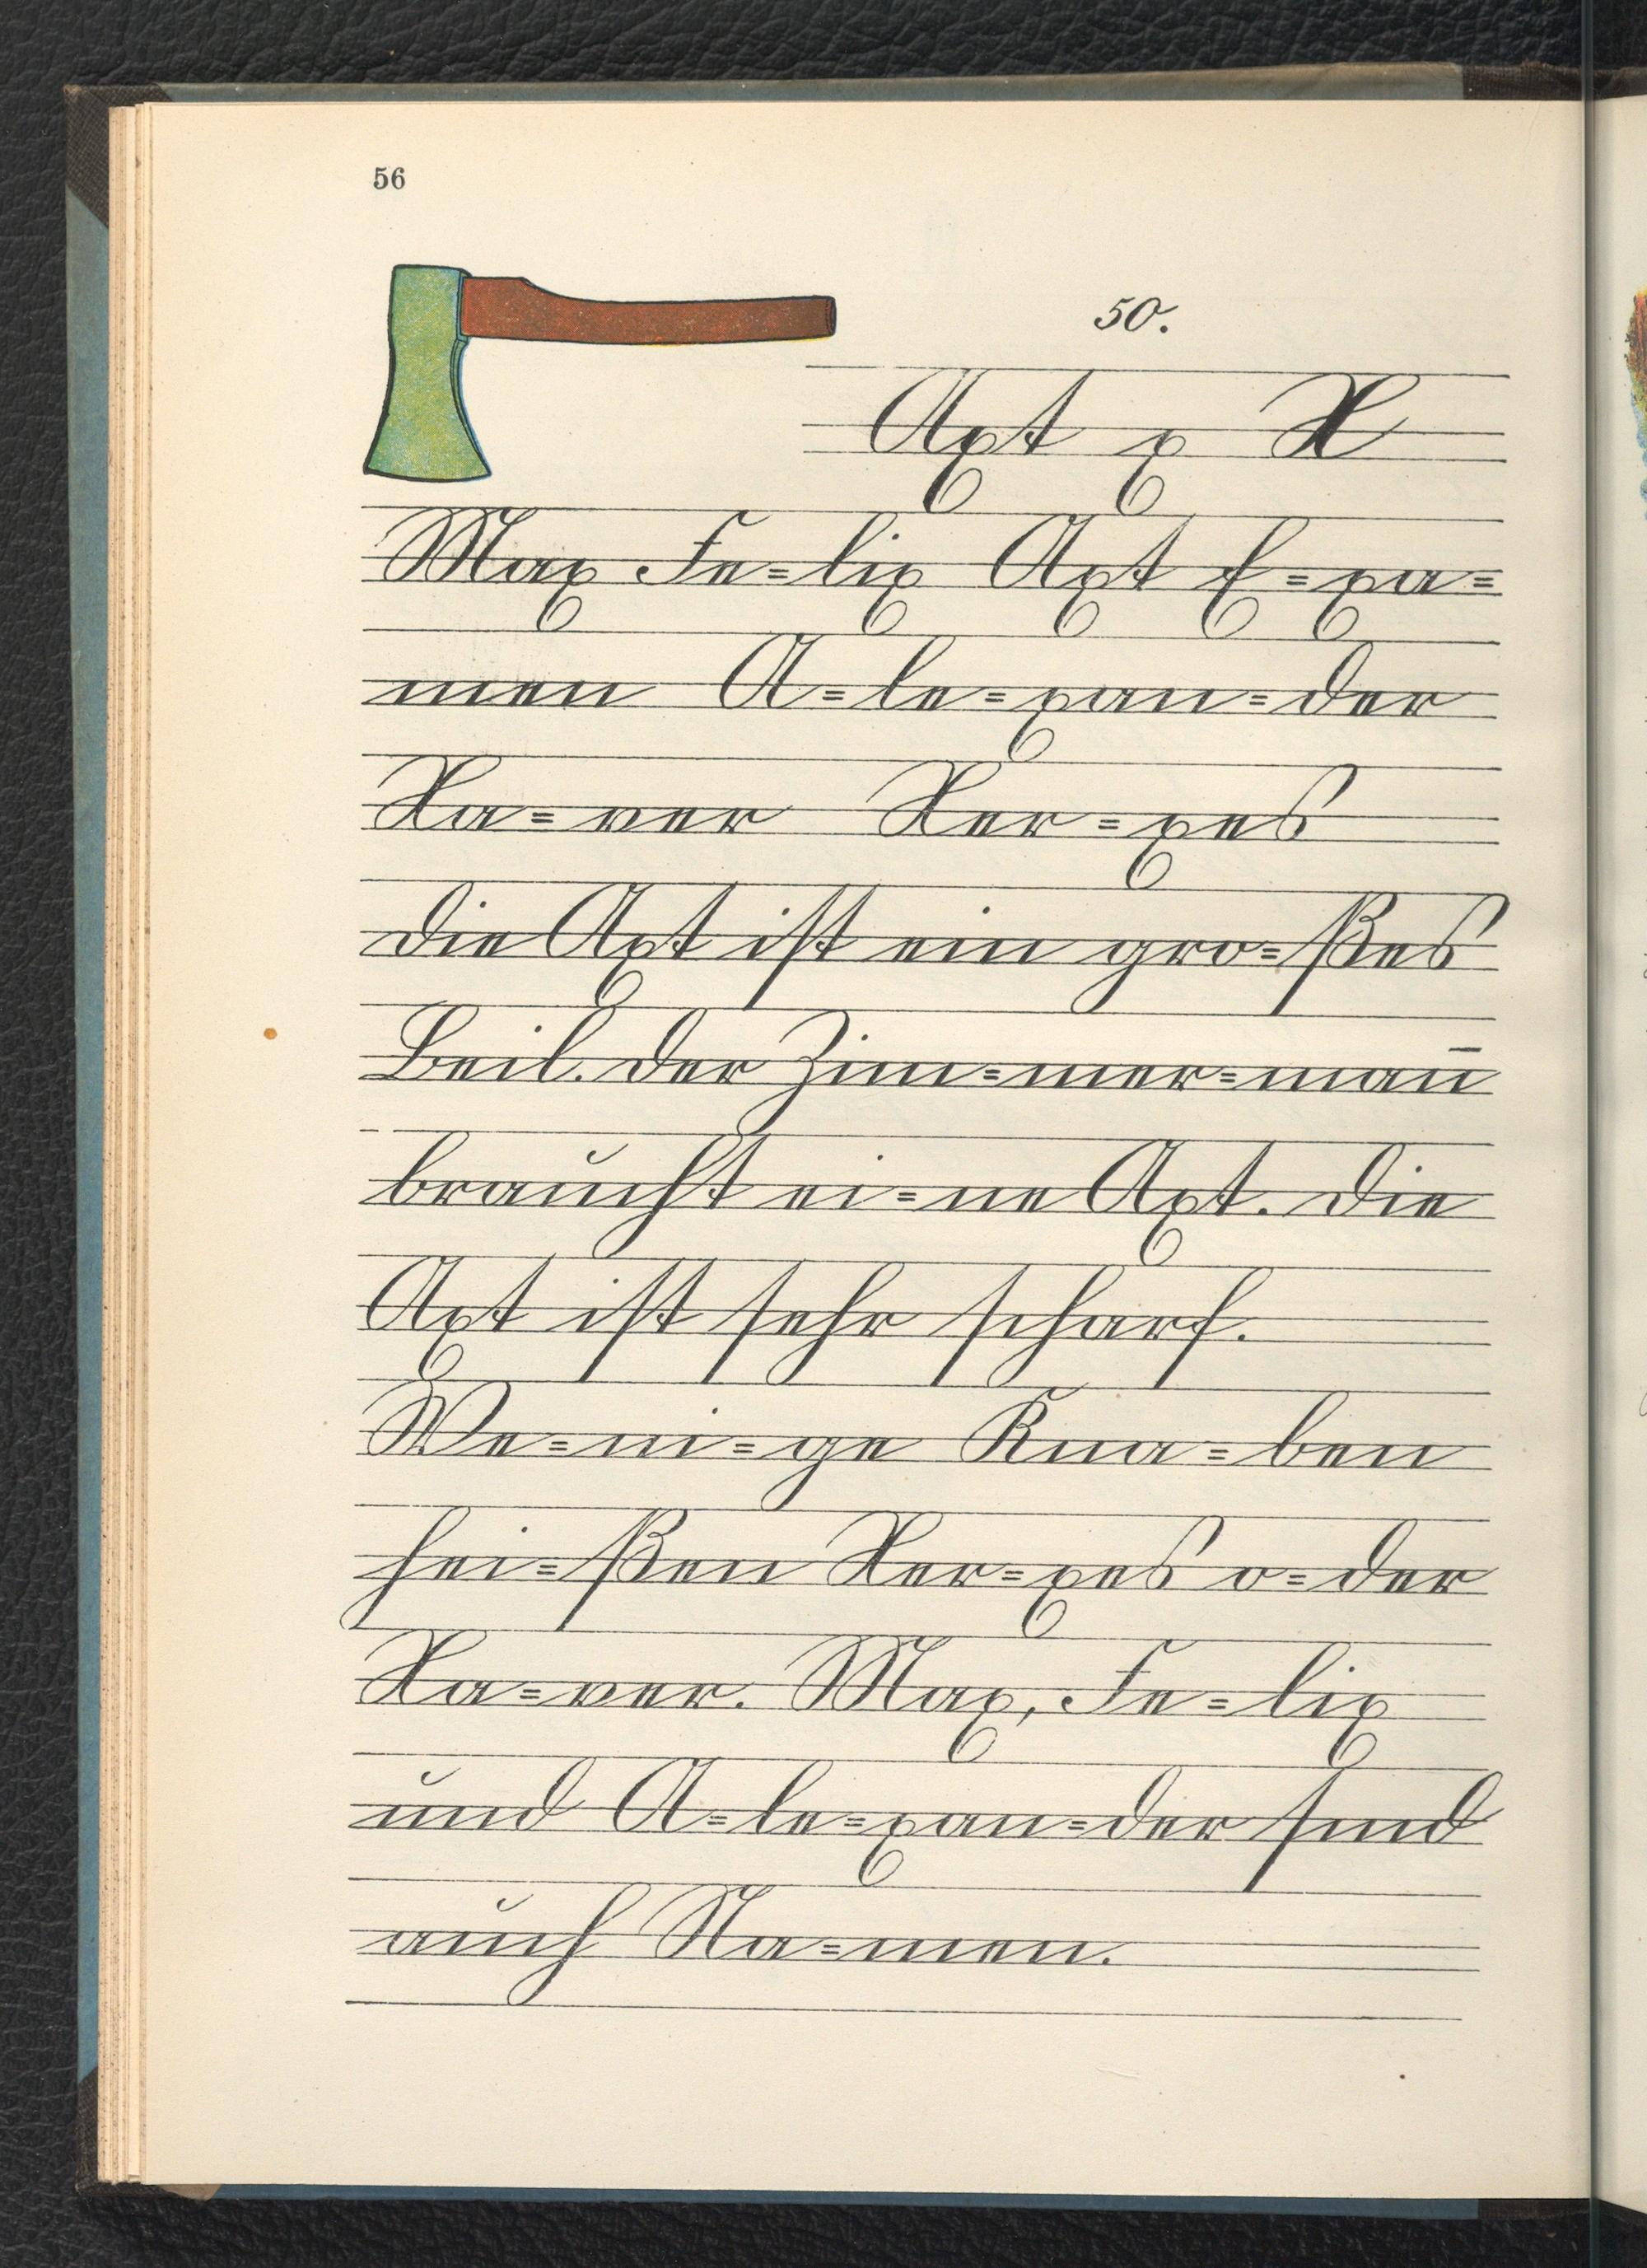 56
50.
Axt x X
Max Fe=lix Axt E=xa=
men A=le=xan=der
Xa=ver Xer=xes
die Axt ist ein gro=ßes
Beil. der Zim=mer=man̄
braucht ei=ne Axt. die
Axt ist sehr scharf.
We=ni=ge Kna=ben
hei=ßen Xer=xes o=der
Xa=ver. Max, Fe=lix
und A=le=xan=der sind
auch Na=men.